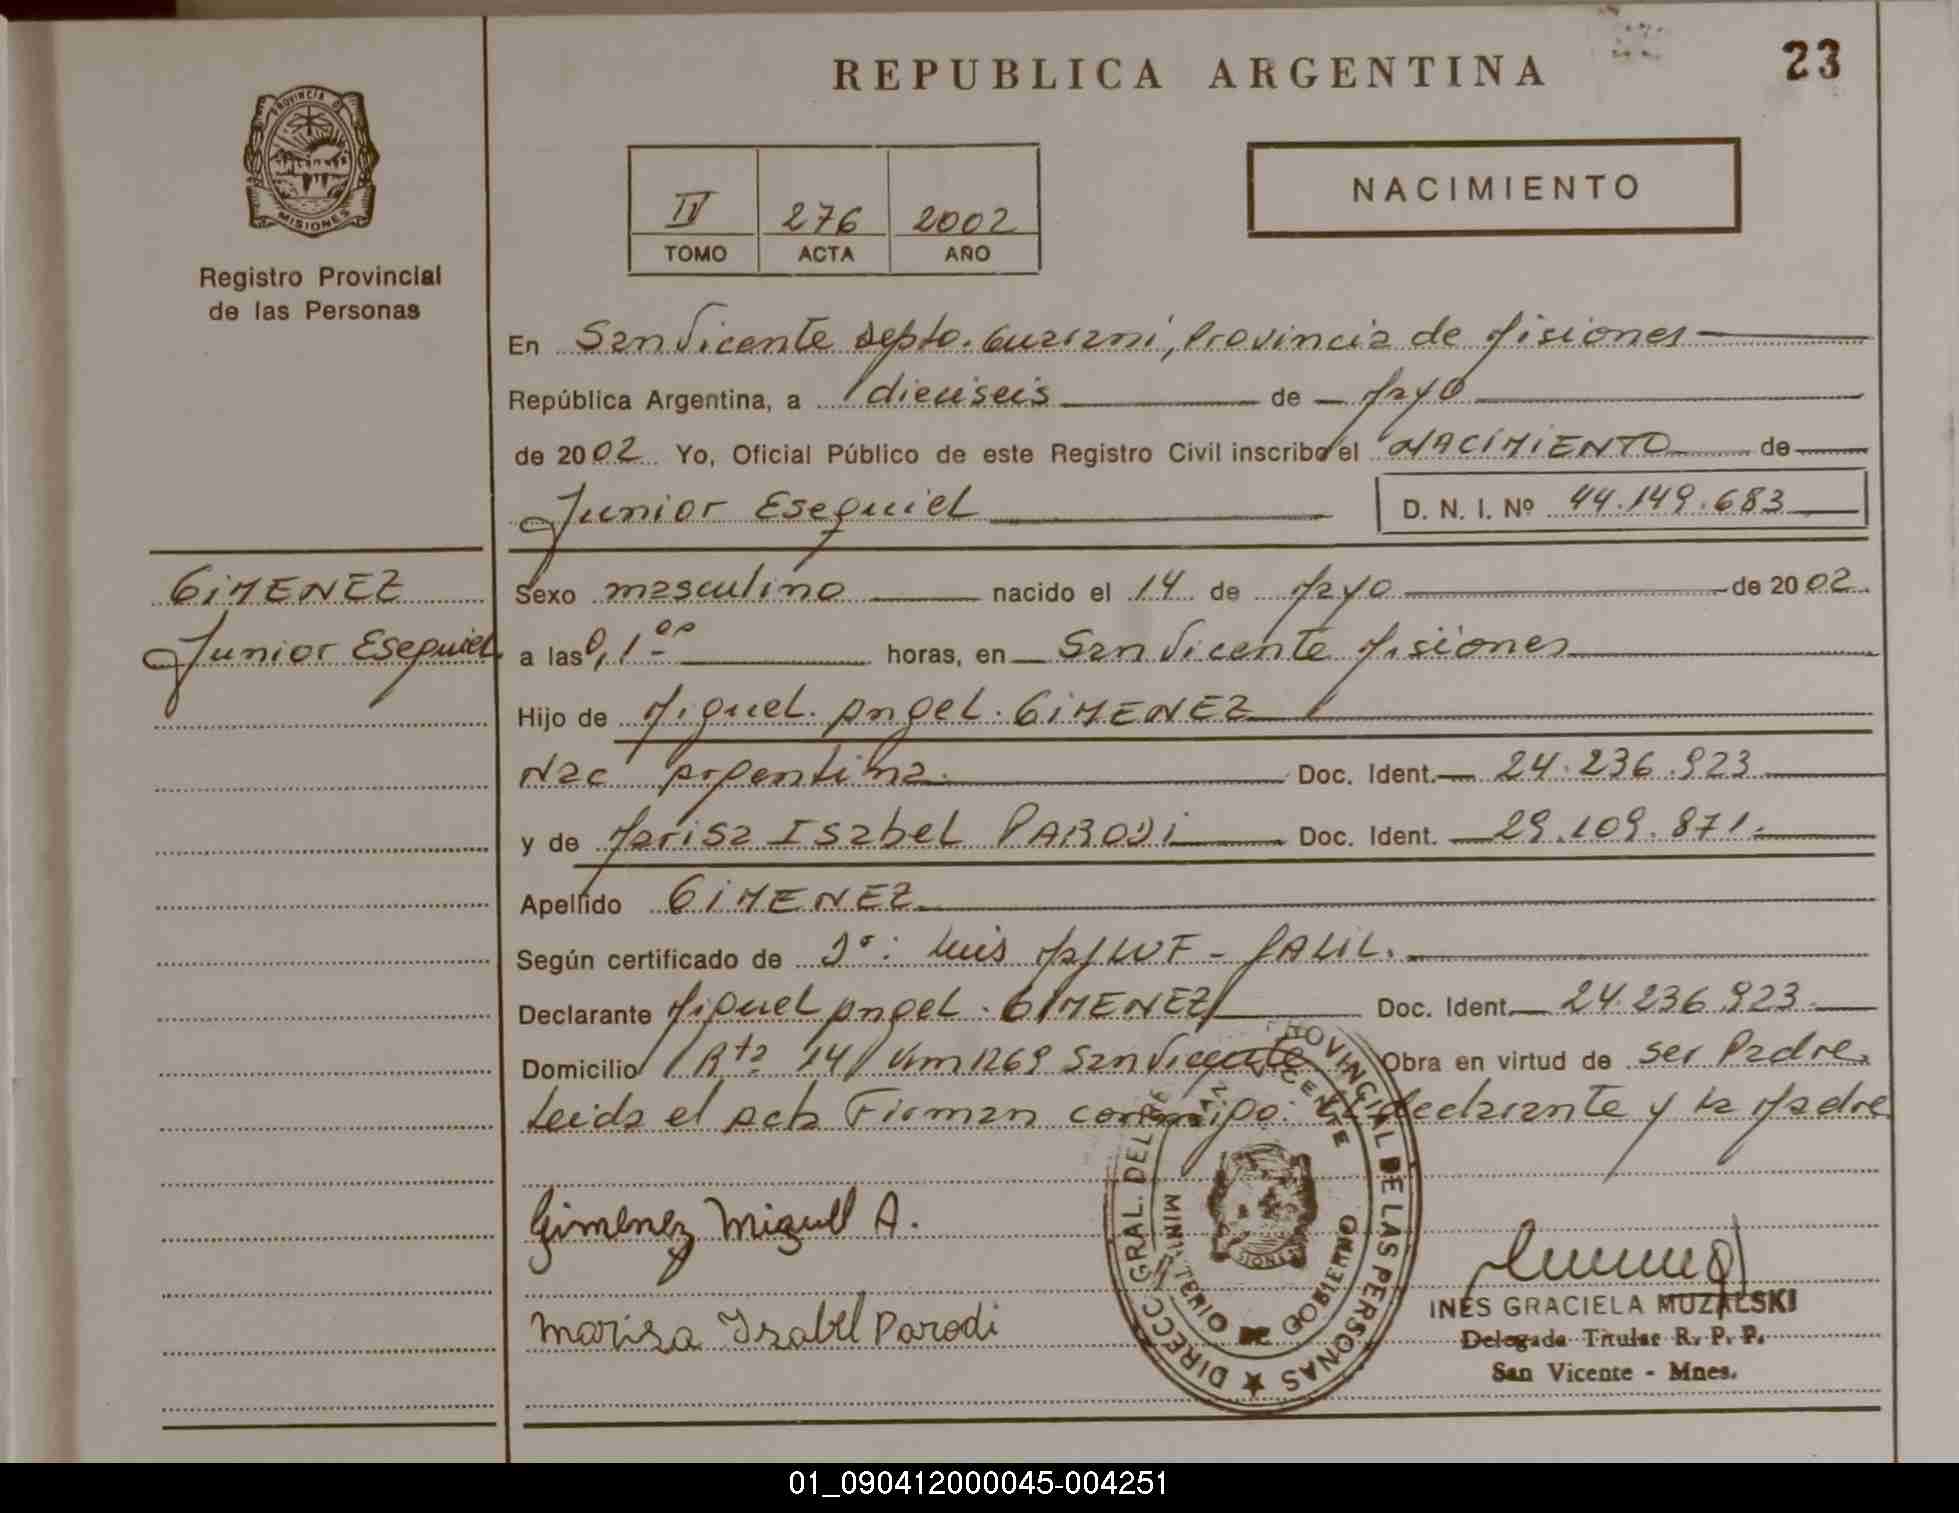 REPUBLICA ARGENTINA
23
PROVINCIA DE
MISIONES
Registro Provincial
de las Personas
IV 276 2002
TOMO ACTA AÑO
NACIMIENTO
En San Vicente Depto. Guarani, Provincia de Misiones
República Argentina, a dieciseis de Mayo
de 2002 Yo, Oficial Público de este Registro Civil inscribo el NACIMIENTO de
Junior Esequiel D. N. I. Nº 44.149.683
GIMENEZ
Junior Esequiel
Sexo masculino nacido el 14 de Mayo de 2002
a las 0,1 00 horas, en San Vicente Misiones
Hijo de Miguel Angel GIMENEZ
Nac Argentina Doc. Ident. 24.236.923
y de Marisa Isabel PARODI Doc. Ident. 29.109.871.
Apellido GIMENEZ
Según certificado de Dr: Luis
Declarante Miguel Angel GIMENEZ Doc. Ident. 24.236.923
Domicilio Rta 14 Km 1269 San Vicente Obra en virtud de ser Padre
Leida el acta Firman conmigo: el declarante y la Madre
Gimenez Miguel A.
Marisa Isabel Parodi
DIRECC. GRAL. DEL REG. PROVINCIAL DE LAS PERSONAS
SAN VICENTE
MINISTERIO DE GOBIERNO
INES GRACIELA MUZALSKI
Delegada Titular R. P. P.
San Vicente - Mnes.
01_090412000045-004251